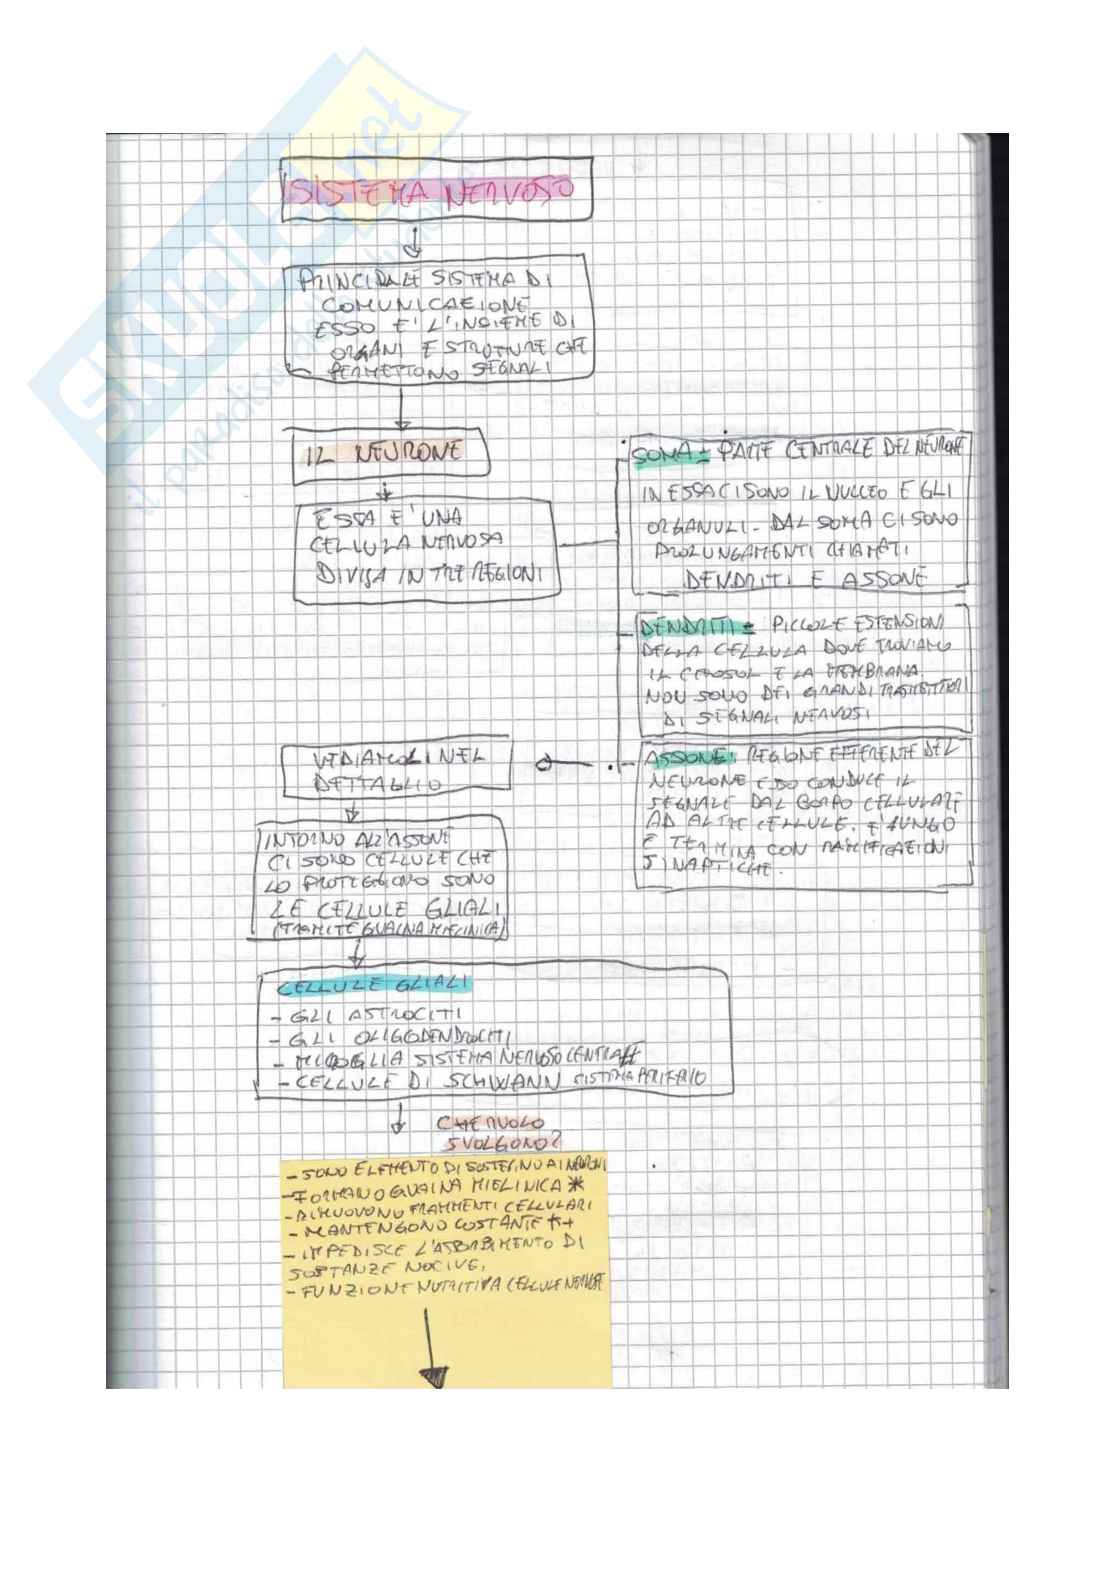 SISTEMA NERVOSO
PRINCIPALE SISTEMA DI
COMUNICAZIONE
ESSO E' L'INSIEME DI
ORGANI E STRUTTURE CHE
PERMETTONO SEGNALI
IL NEURONE
ESSA E' UNA
CELLULA NERVOSA
DIVISA IN TRE REGIONI
SOMA = PARTE CENTRALE DEL NEURONE
IN ESSA CI SONO IL NUCLEO E GLI
ORGANULI. DAL SOMA CI SONO
PROLUNGAMENTI CHIAMATI
DENDRITI E ASSONE
DENDRITI = PICCOLE ESTENSIONI
DELLA CELLULA DOVE TROVIAMO
IL CITOSOL E LA MEMBRANA.
NON SONO DEI GRANDI TRASMETTITORI
DI SEGNALI NERVOSI
ASSONE: REGIONE EFFERENTE DEL
NEURONE E CONDUCE IL
SEGNALE DAL CORPO CELLULARE
AD ALTRE CELLULE. E' LUNGO
E TERMINA CON RAMIFICAZIONI
SINAPTICHE.
VEDIAMOLI NEL
DETTAGLIO
INTORNO ALL'ASSONE
CI SONO CELLULE CHE
LO PROTEGGONO SONO
LE CELLULE GLIALI
(TRAMITE GUAINA MIELINICA)
CELLULE GLIALI
- GLI ASTROCITI
- GLI OLIGODENDROCITI
- MICROGLIA SISTEMA NERVOSO CENTRALE
- CELLULE DI SCHWANN SISTEMA PERIFERICO
CHE RUOLO
SVOLGONO?
- SONO ELEMENTO DI SOSTEGNO AI NEURONI
- FORMANO GUAINA MIELINICA *
- RIMUOVONO FRAMMENTI CELLULARI
- MANTENGONO COSTANTE K+
- IMPEDISCE L'ASSORBIMENTO DI
SOSTANZE NOCIVE.
- FUNZIONE NUTRITIVA CELLULE NERVOSE
SKUOLA.net
il paradiso dello studente